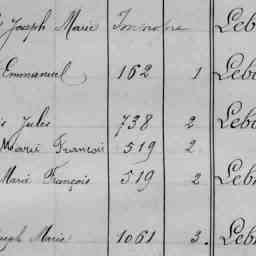 Joseph Marie Leb
Emmanuel 162 1 Leb
Jules 738 2 Leb
Marie François 519 2
Marie François 519 2 Leb
Joseph Marie 1061 3. Leb